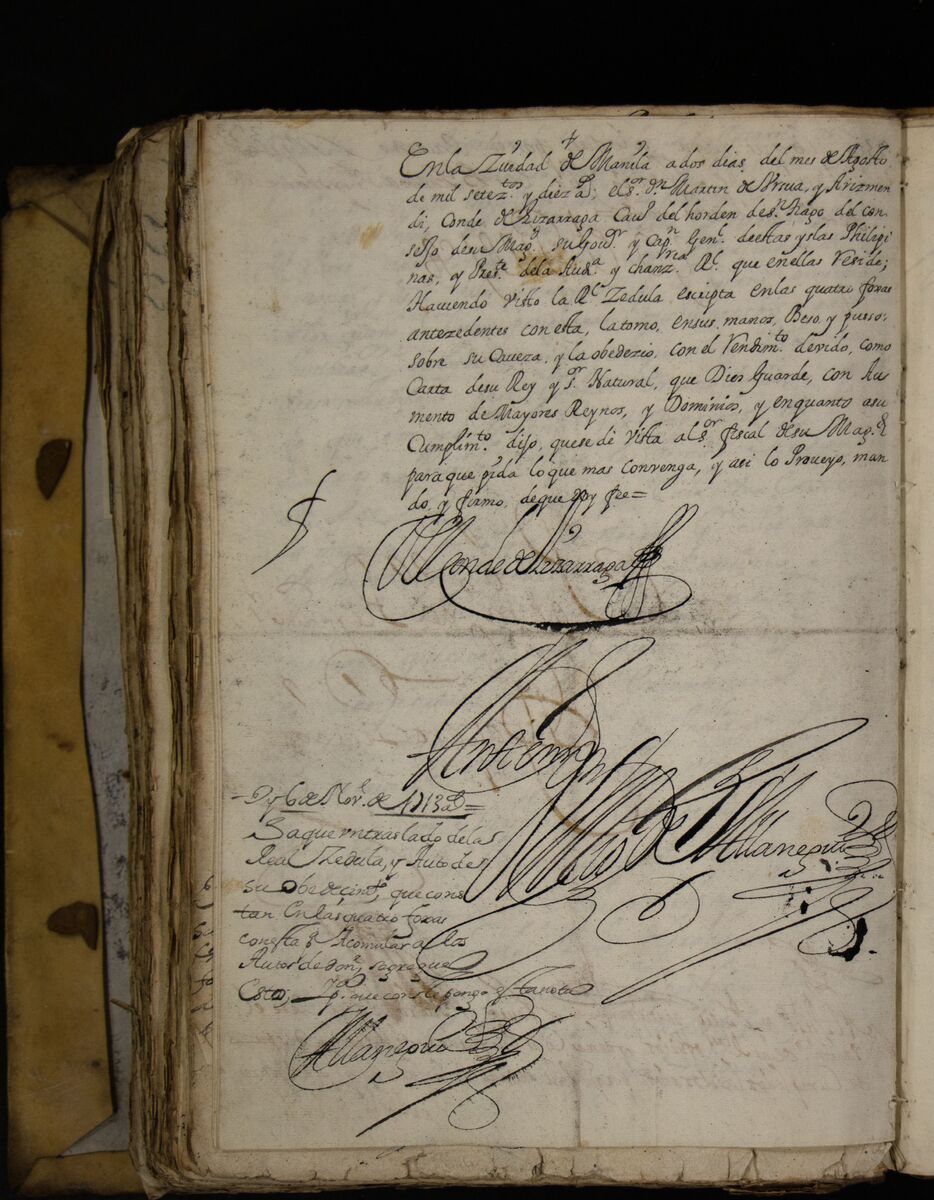 En la Ziudad de Manila a dos dias del mes de Agosto
de mil setez.tos y diez a.s; el s.or D.n Martin de Vrsua, y Arizmen
di, Conde de Lizarraga Cau.o del horden de S.n Tiago del con
sejo de su Mag.d su Gou.or y Cap.n Gen.l de estas yslas Philipi
nas, y Pres.te de la Aud.a y chanz.ria R.l que en ellas Reside;
Haviendo visto la R.l Zedula escripta en las quatro foxas
antezedentes con esta, la tomo, en sus manos, Beso, y pusso
sobre su Caveza, y la obedezio, con el Rendim.to devido, como
Carta de su Rey y s.or Natural, que Dios Guarde, con Au
mento de Mayores Reynos, y Dominios, y en quanto a su
Cumplim.to dijo, que se dé vista al s.or fiscal de su Mag.d
para que pida lo que mas convenga, y asi lo Proveyo, man
do, y firmo, de que doy fee=
El Conde de Lizarraga
Ante mi
- Oy 6 de Nov.e de 1713 a.s =
Saque vn traslado de las
Real Zedula, y Auto de
su obedecim.to, que cons
tan En las quatro foxas
con esta Acomular a los
Autos de
que conste pongo esta nota